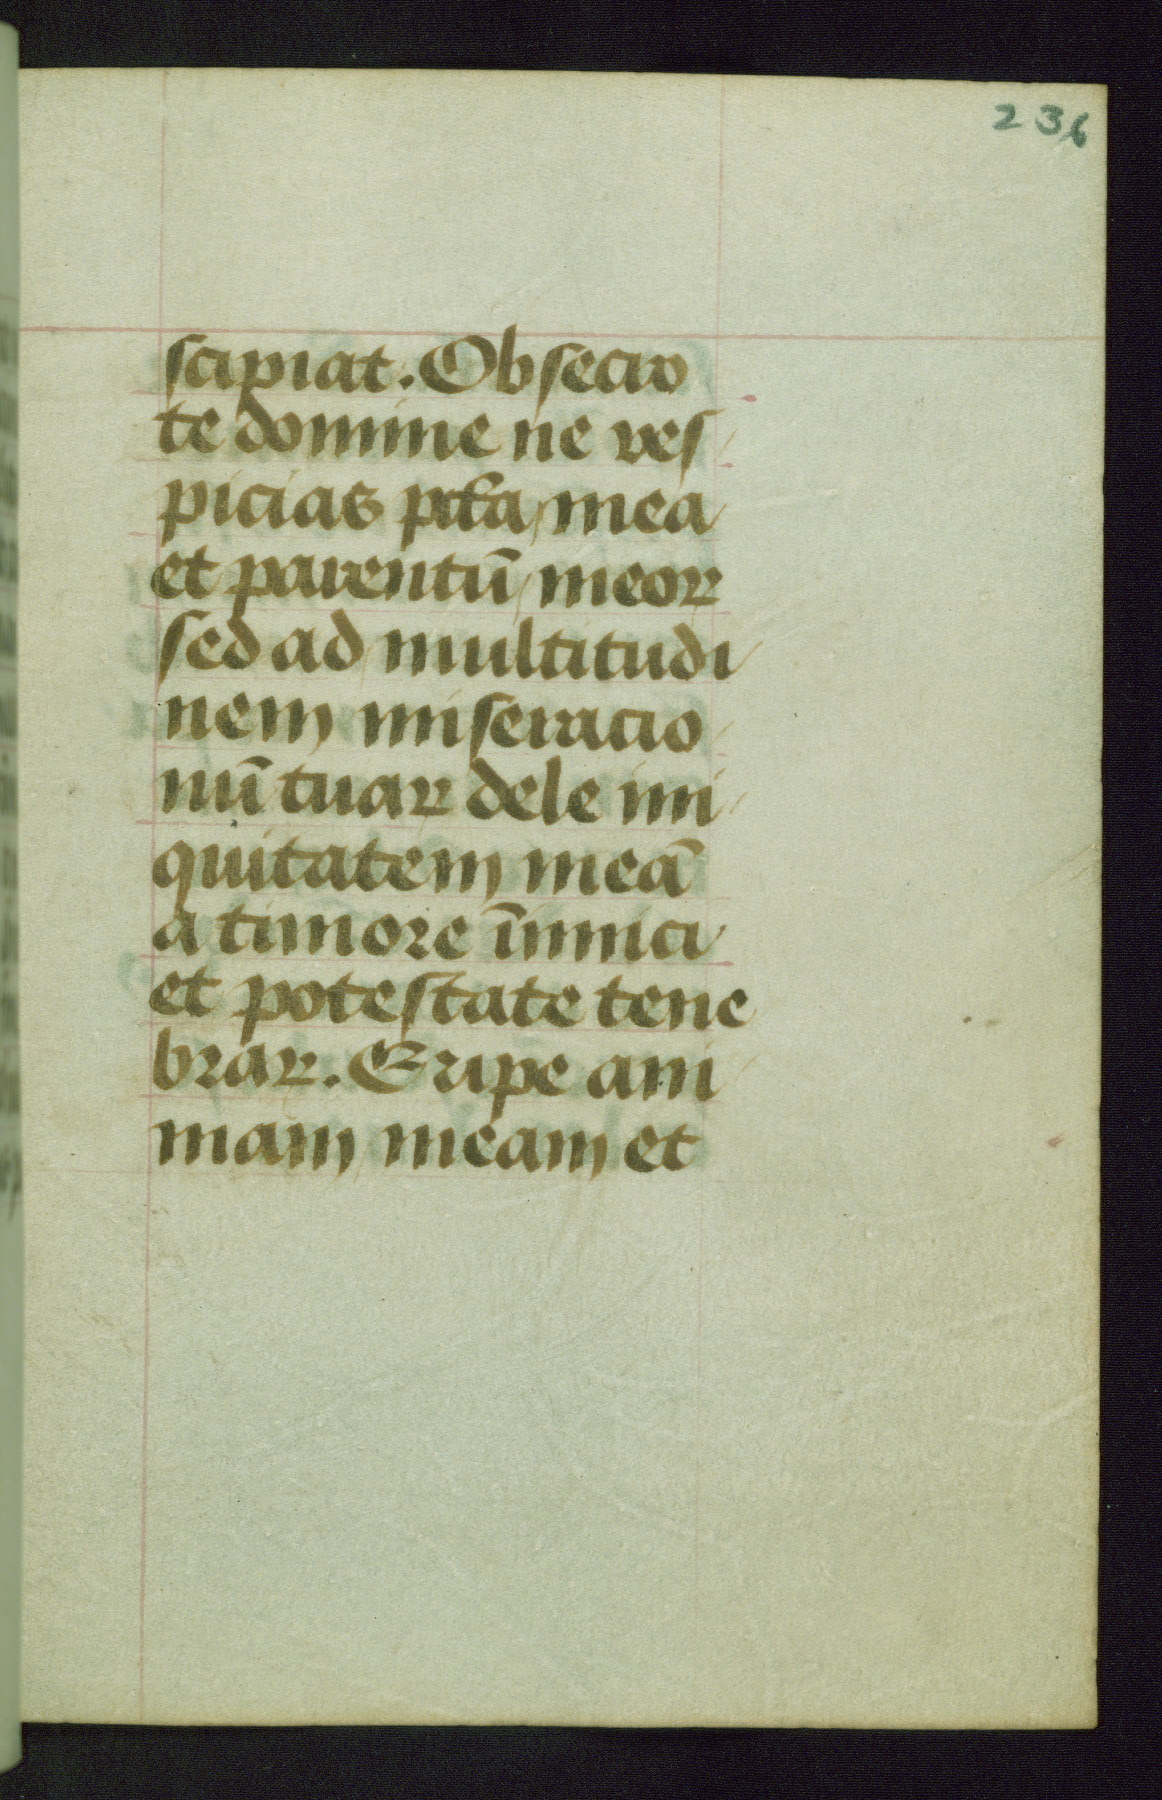 236
scipiat. Obsecro
te domine ne res
picias pctā mea
et parentū meoꝝ
sed ad multitudi
nem miseracio
nū tuaꝝ dele ini
quitatem meā
a timore īimici
et potestate tene
braꝝ. Eripe ani
mam meam et